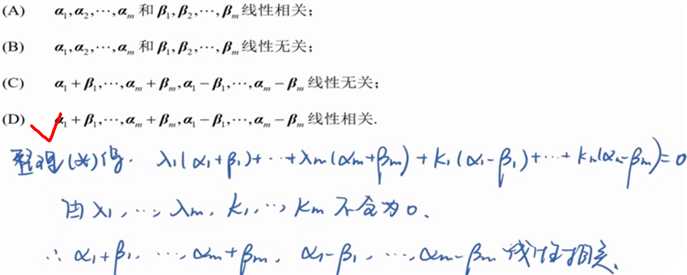 (A) α₁,α₂,⋯,αₘ 和 β₁,β₂,⋯,βₘ 线性相关;
(B) α₁,α₂,⋯,αₘ 和 β₁,β₂,⋯,βₘ 线性无关;
(C) α₁+β₁,⋯,αₘ+βₘ,α₁-β₁,⋯,αₘ-βₘ 线性无关;
(D) α₁+β₁,⋯,αₘ+βₘ,α₁-β₁,⋯,αₘ-βₘ 线性相关.
整理(*)得. λ₁(α₁+β₁)+⋯+λₘ(αₘ+βₘ)+k₁(α₁-β₁)+⋯+kₘ(αₘ-βₘ)=0
由λ₁,⋯,λₘ,k₁,⋯,kₘ 不全为0.
∴ α₁+β₁,⋯,αₘ+βₘ, α₁-β₁,⋯,αₘ-βₘ 线性相关.